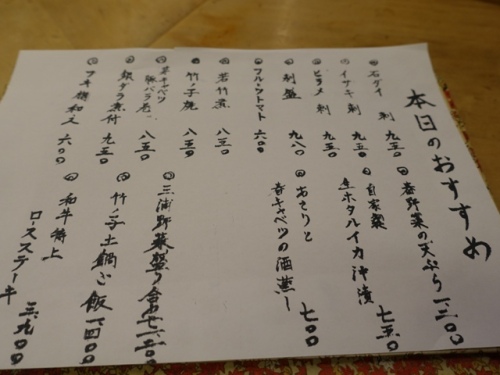 本日のおすすめ
石ダイ刺 九五〇
イサキ刺 九五〇
ヒラメ刺 九五〇
刺盛 九八〇
フルーツトマト 六〇〇
若竹煮 八五〇
竹ノ子焼 八五〇
春キャベツ
豚バラ巻 八五〇
銀ダラ煮付 九五〇
フキ 和え 六〇〇
春野菜の天ぷら 一二〇〇
自家製
生ホタルイカ沖漬 七五〇
あさりと
春キャベツの酒蒸し 七〇〇
三浦野菜盛り合わせ 一二〇〇
竹ノ子土鍋ご飯 一四〇〇
和牛特上
ロースステーキ 二九〇〇